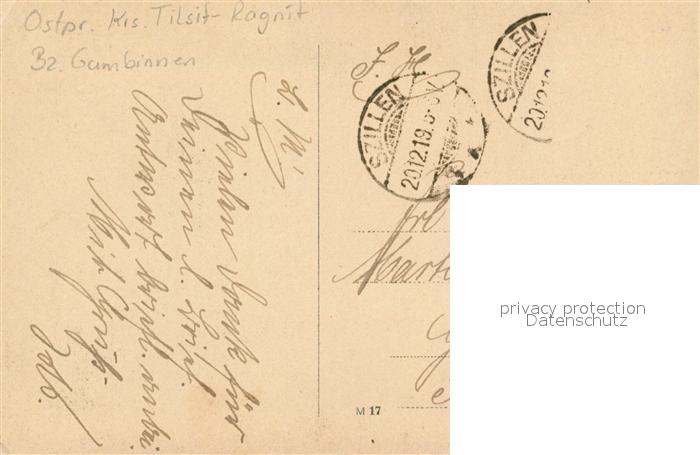 Ostpr. Krs. Tilsit-Ragnit
Bz. Gumbinnen
L. M!
Vielen Dank für
Deinen l. Brief
Antwort
Mit Gruß
F. H.
SZILLEN
20.12.19.
SZILLEN
20.12.19
Frl
Mart
M 17
privacy protection
Datenschutz